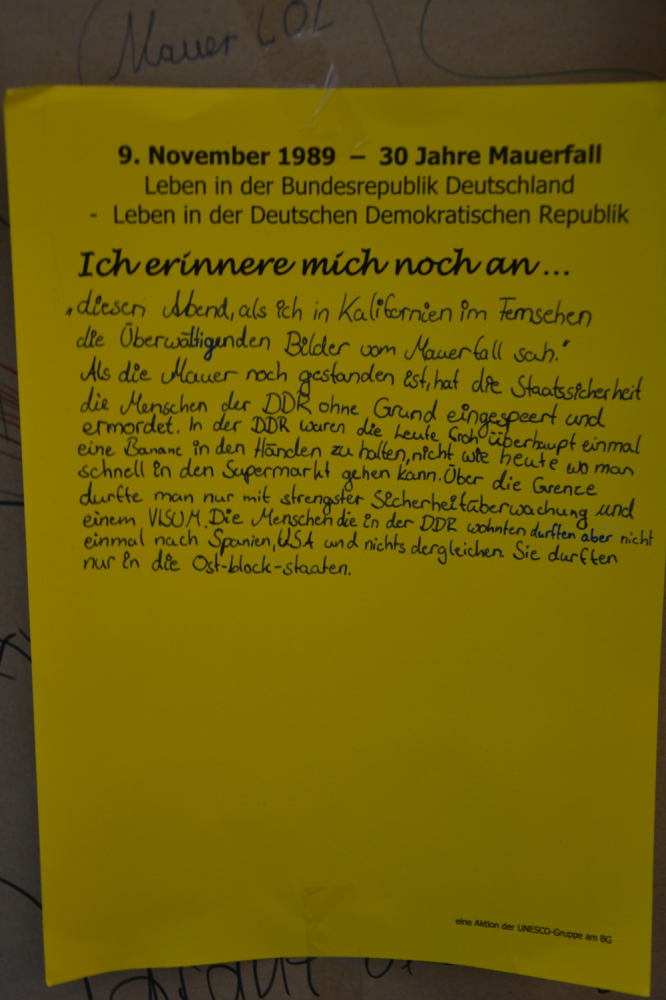 Mauer LOL
9. November 1989 – 30 Jahre Mauerfall
Leben in der Bundesrepublik Deutschland
- Leben in der Deutschen Demokratischen Republik
Ich erinnere mich noch an...
„diesen Abend, als ich in Kalifornien im Fernsehen
die Überwältigenden Bilder vom Mauerfall sah."
Als die Mauer noch gestanden ist, hat die Staatssicherheit
die Menschen der DDR ohne Grund eingespeert und
ermordet. In der DDR waren die Leute froh überhaupt einmal
eine Banane in den Händen zu halten, nicht wie heute wo man
schnell in den Supermarkt gehen kann. Über die Grence
durfte man nur mit strengster Sicherheitsüberwachung und
einem VISUM. Die Menschen die in der DDR wohnten durften aber nicht
einmal nach Spanien, USA und nichts dergleichen. Sie durften
nur in die Ost-block-staaten.
eine Aktion der UNESCO-Gruppe am BG